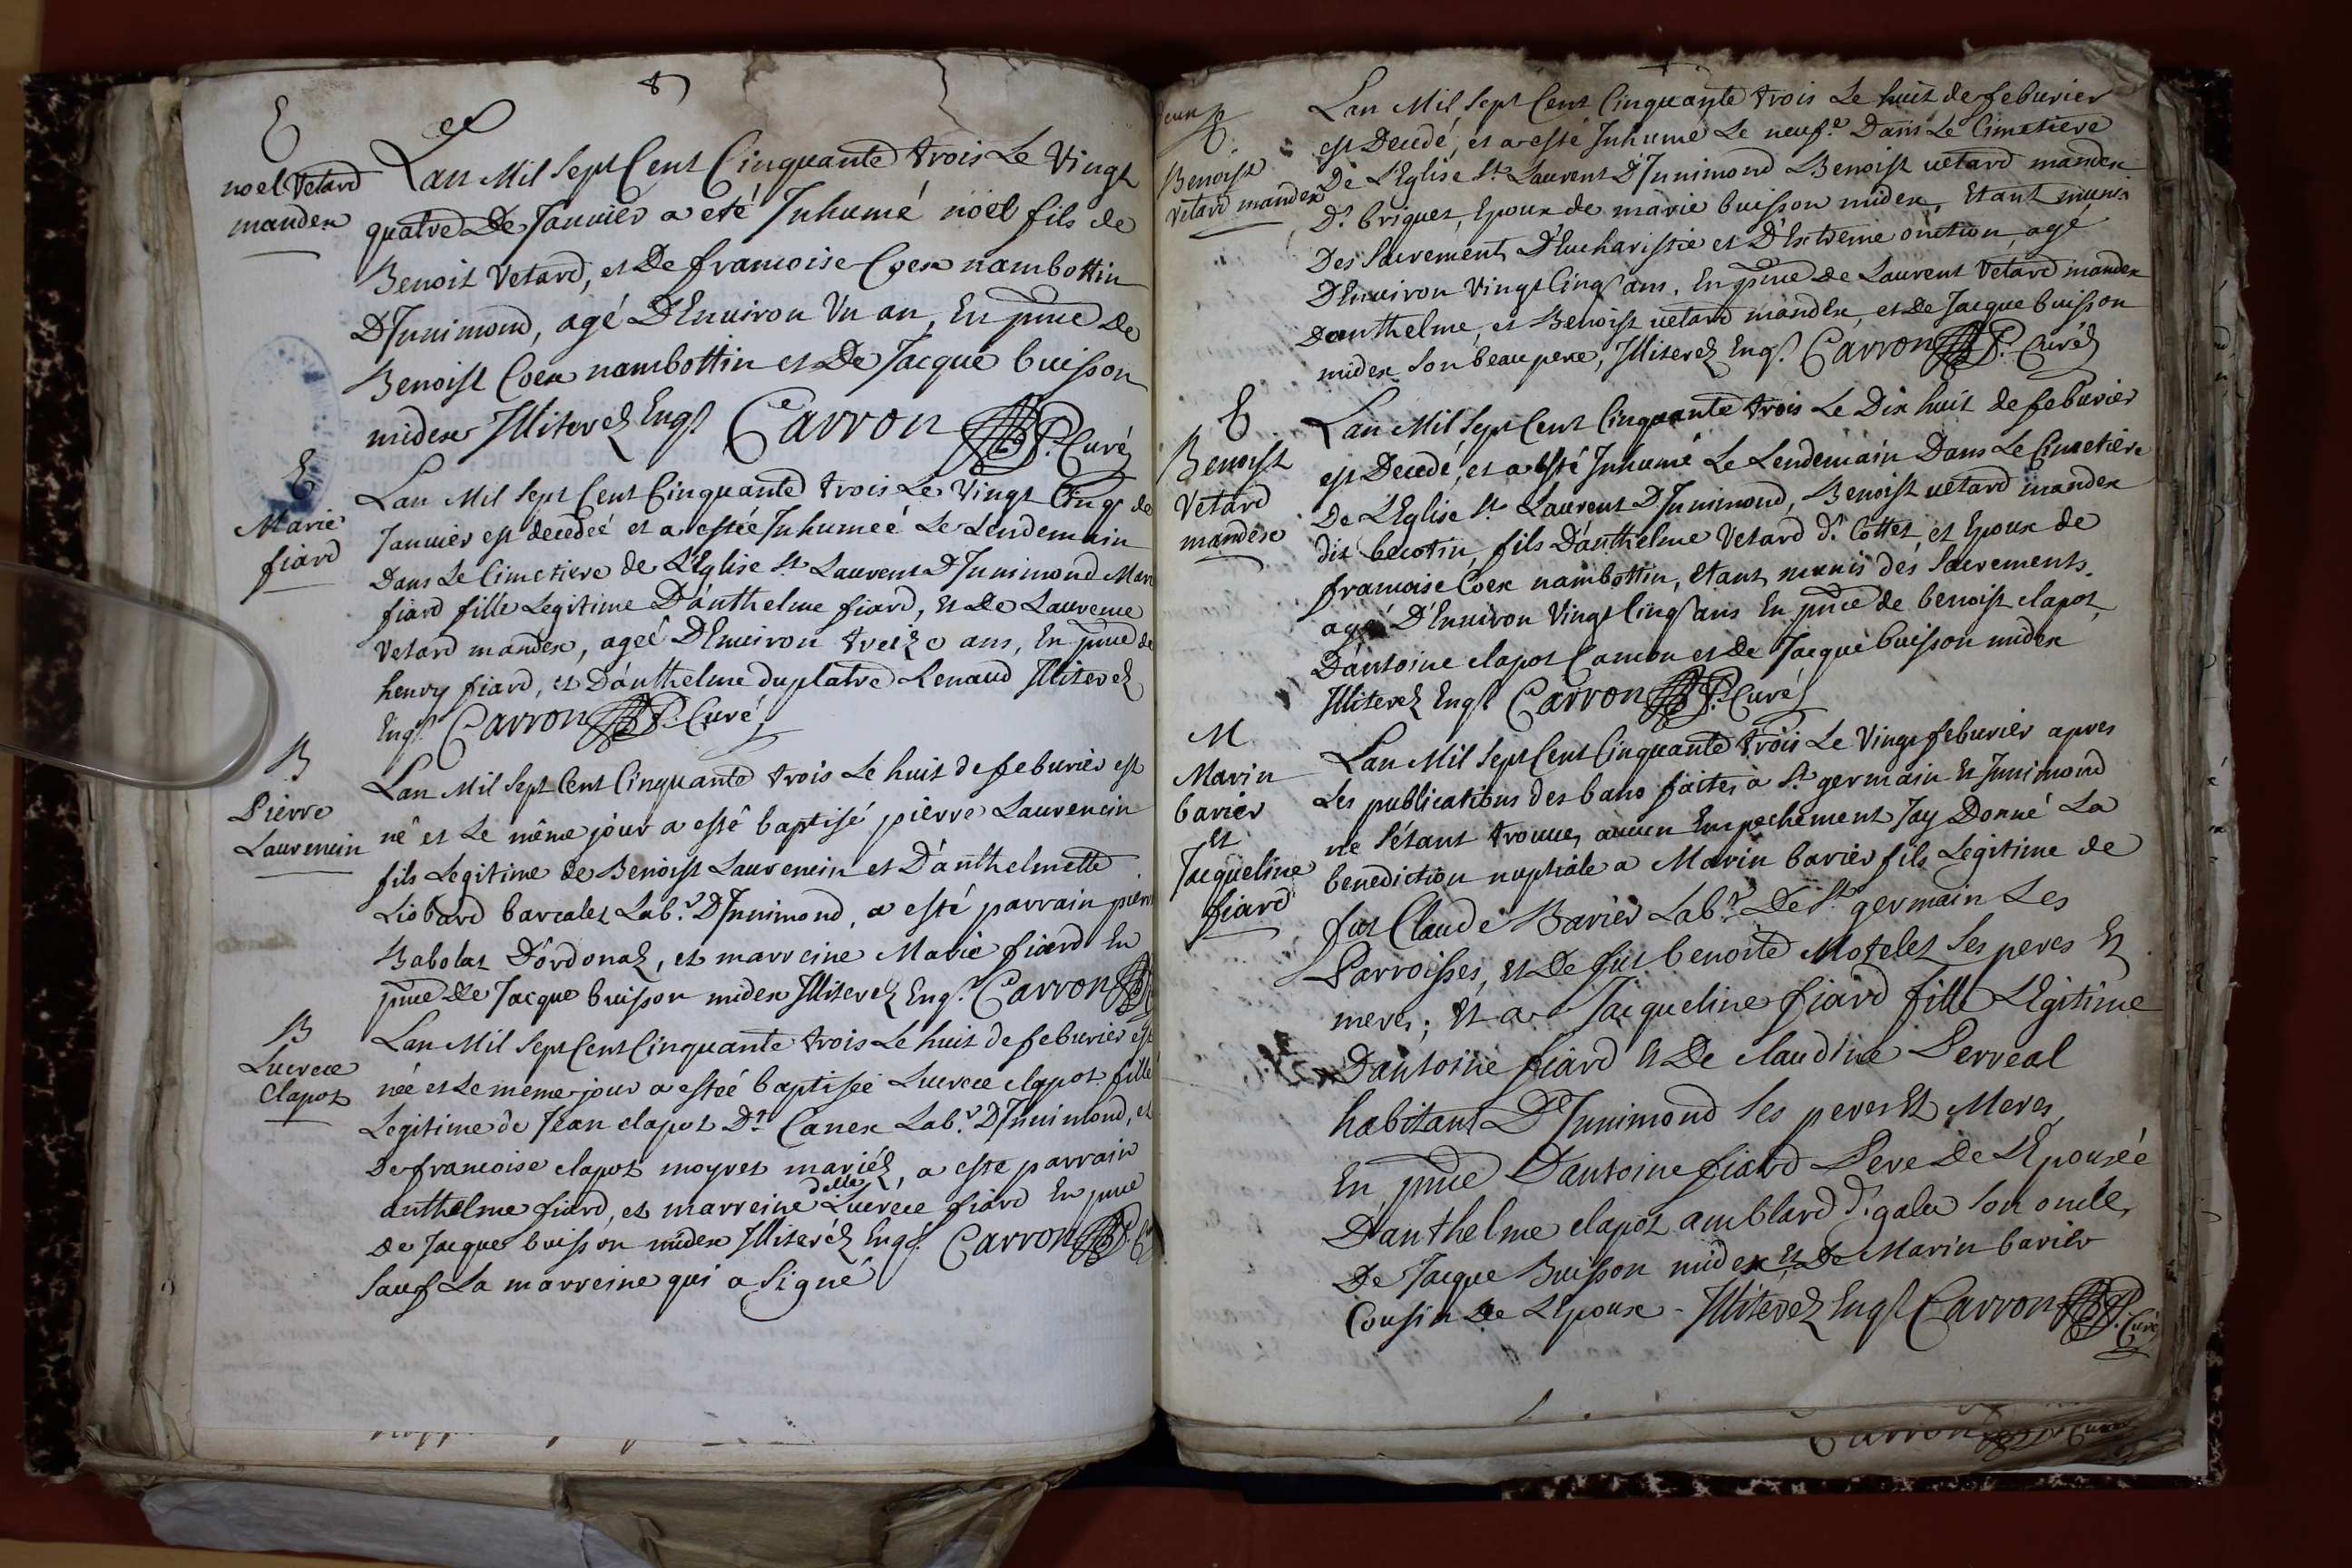 E
noel Vetard
mandex
Lan Mil Sept Cent Cinquante trois Le Vingt
quatre De Januier a eté Inhumé noël fils de
Benoit Vetard, et De francoise Coex nambottin
D'Innimond, agé D'Enuiron Vn an, En pnce de
Benoist Coex nambottin et De Jacque buisson
midex Illiterez Engt Carron P. Curé
E
Marie
fiard
Lan Mil Sept Cent Cinquante trois Le Vingt Cinq de
Januier est decedeé et a estée Inhumeé Le Lendemain
Dans Le Cimetiere de L'Eglise St Laurent D'Innimond Mari
fiard fille Legitime D'anthelme fiard, et De Laurence
Vetard mandex, ageé D'Enuiron treize ans, En pnce de
henry fiard, et D'anthelme duplatre Lenaud Illiterez
Engt Carron P. Curé
B
Pierre
Laurencin
Lan Mil Sept Cent Cinquante trois Le huit de feburier est
né et Le même jour a esté baptisé pierre Laurencin
fils Legitime de Benoist Laurencin et D'anthelmette
Liobard barcalet Labr D'Innimond, a esté parrain pierr
Babolat D'ordonaz, et marreine Marie fiard En
pnce De Jacque buisson midex Illiterez Engt Carron
B
Lucrece
Clapot
Lan Mil Sept Cent Cinquante trois Le huit de feburier est
née et Le meme jour a esteé baptisée Lucrece clapot fille
Legitime de Jean clapot Dt Canex Labr D'Innimond, et
De francoise clapot moyret mariéz, a esté parrain
anthelme fiard, et marreine delle Lucrece fiard En pnce
de Jacque buisson midex Illiteréz Engt Carron P. Cu
Sauf La marreine qui a Signé
E
Benoist
Vetard mandex
Lan Mil Sept Cent Cinquante trois Le huit de feburier
est Decedé, et a esté Inhumé Le neufe Dans Le Cimetiere
De L'Eglise St Laurent D'Innimond Benoist uetard mandex
Dt briquet, Epoux de marie buisson midex, Etant munis
Des Sacrements D'Eucharistie et D'Extreme onction, agé
D'Enuiron Vingt Cinq ans, En pnce de Laurent Vetard mandex
Danthelme, et Benoist uetard mandex, et de Jacque buisson
midex Son beau pere, Illiterez Engt Carron P. Curé
E
Benoist
Vetard
mandex
Lan Mil Sept Cent Cinquante trois Le Dix huit de feburier
est Decedé, et a esté Inhumé Le Lendemain Dans Le Cimetiere
De L'Eglise St Laurent D'Innimond, Benoist uetard mandex
dit becotin, fils D'anthelme Vetard dt Cottet, et Epoux de
francoise Coex nambottin, Etant munis des Sacrements
agé D'Enuiron Vingt Cinq ans En pnce de benoist clapot,
D'antoine clapot Camon et de Jacque buisson midex
Illiterez Engt Carron P. Curé
M
Marin
barier
et
Jacqueline
fiard
Lan Mil Sept Cent Cinquante trois Le Vingt feburier apres
Les publications des bans faites a St germain Et Innimond
ne S'étant trouue, aucun Empechement Jay Donné La
benediction nuptiale a Marin barier fils Legitime de
fut Claude Barier Labr De St germain Les
Parroisses, et De fut benoite Motelet Ses peres Et
meres; et a Jacqueline fiard fille LEgitime
D'antoine fiard et De claudine Perreal
habitant D'Innimond Ses peres Et Meres
En pnce D'antoine fiard Pere De L'Epouseé
D'anthelme clapot amblard dt galex Son oncle,
De Jacque Buisson midex et De Marin barier
Cousin De L'Epoux - Illiterez Engt Carron P. Curé
Carron